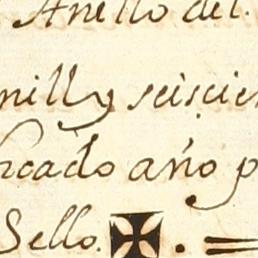 Anello del.
mill y seiscien
rcado año p
Sello.